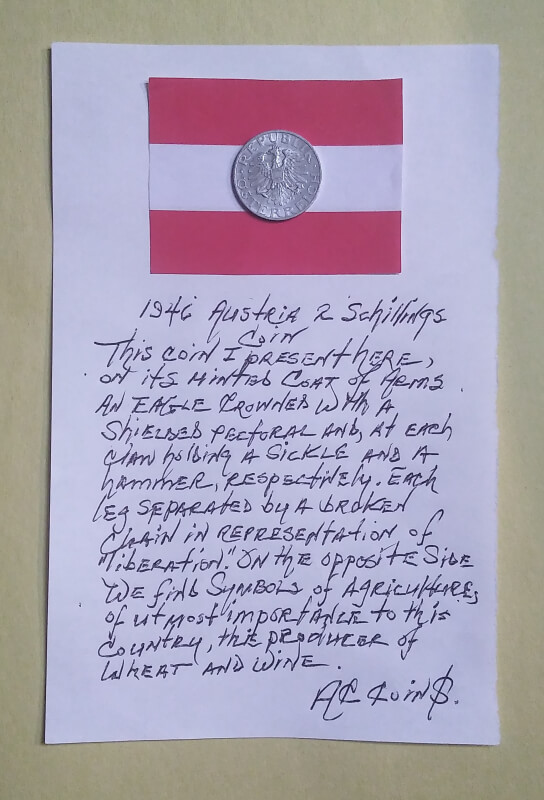 REPUBLIK
ÖSTERREICH
1946 Austria 2 Schillings
Coin
This coin I present here,
on its minted Coat of Arms
An Eagle Crowned with a
Shielded pectoral and, at each
claw holding a sickle and a
hammer, respectively. Each
leg separated by a broken
Chain in representation of
"liberation". On the opposite side
We find symbols of Agriculture,
of utmost importance to this
country, the producer of
Wheat and wine.
AC Coin$.